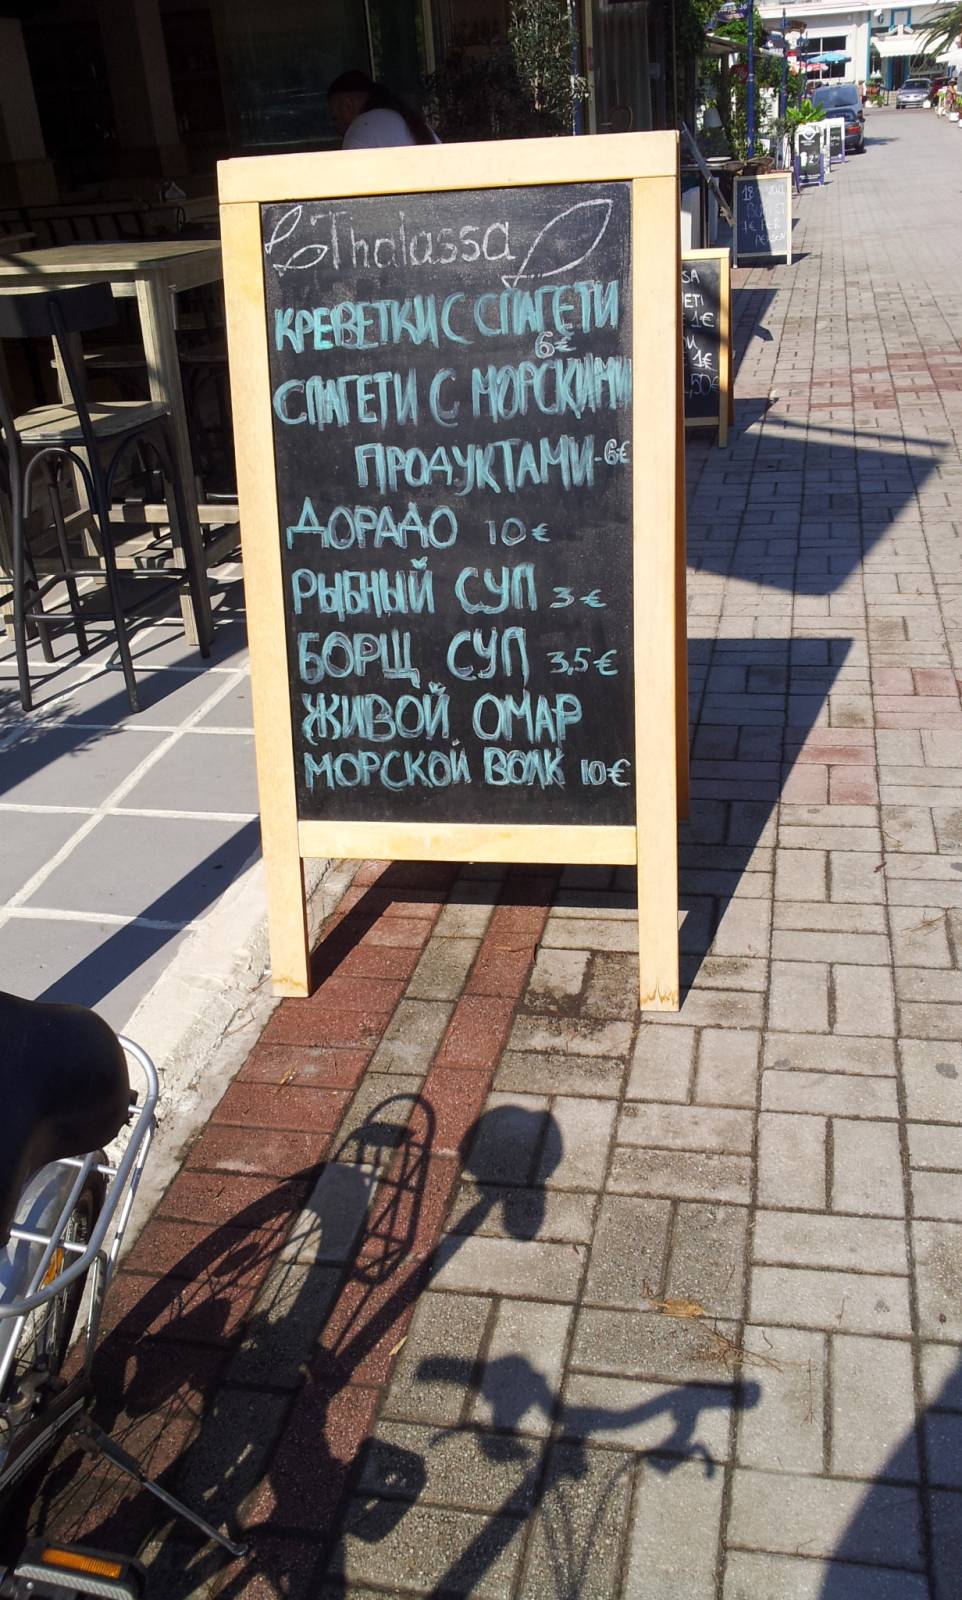 Thalassa
КРЕВЕТКИ С СПАГЕТИ
6€
СПАГЕТИ С МОРСКИМИ
ПРОДУКТАМИ-6€
ДОРАДО 10€
РЫБНЫЙ СУП 3€
БОРЩ СУП 3,5€
ЖИВОЙ ОМАР
МОРСКОЙ ВОЛК 10€
1€
1€